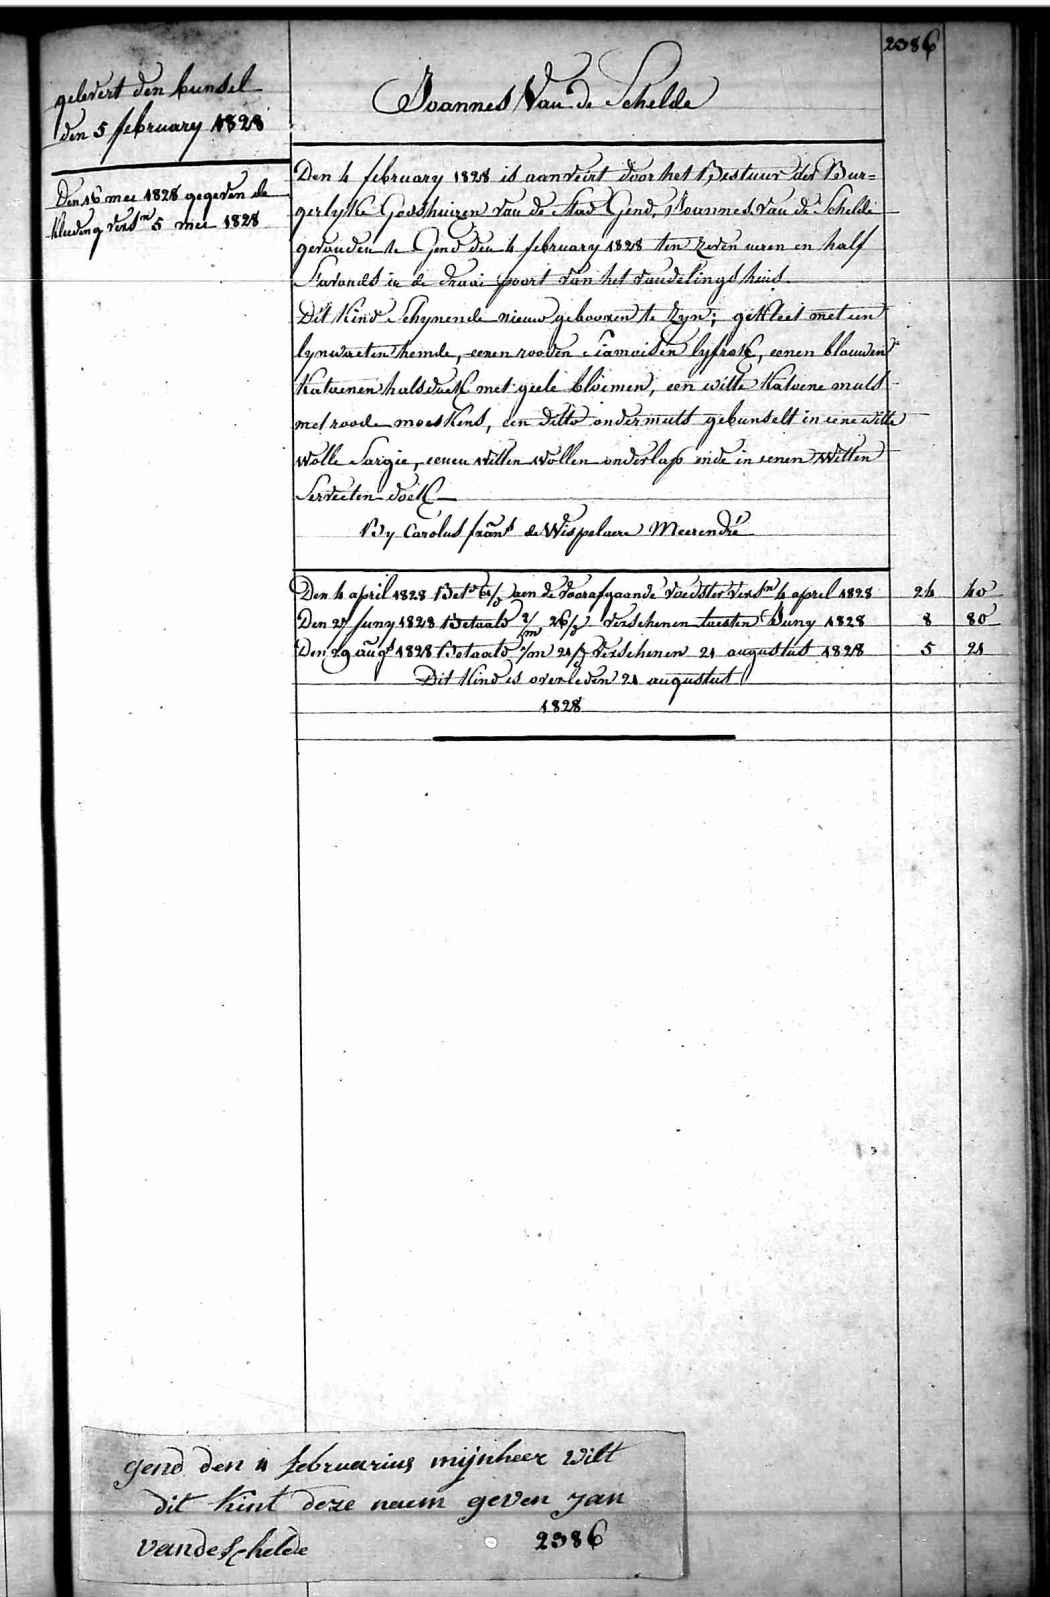 2386
gelevert den bunsel
den 5 february 1828
Den 16 mee 1828 gegeven de
kleeding versn 5 mee 1828
Joannes Van de Schelde
Den 4 february 1828 is aanveirt door het Bestuur der Bur=
gerlyke Godshuizen van de Stad Gend, Joannes van de Schelde
gevonden te Gend den 4 february 1828 ten zeven uren en half
s'avonds in de draai poort van het vondelings huis.
Dit kind schynende nieuw gebooren te zyn; gekleet met een
lynwaeten hemde, eenen rooden siamoisen lyfrok, eenen blauwen
katoenen halsdoek met geele bloemen, een witte katoene muts
met roode moeskens, een ditto ondermuts gebunselt in eene witte
wolle sargie, eenen witten wollen onderlap ende in eenen witten
servieten doek
By Carolus frans de Wispelaere Meerendré
Den 4 april 1828 Bet aen de voorafgaande voedster versn 4 april 1828 24 40
Den 27 juny 1828 Betaald 2/m 26/d verschenen luesten Juny 1828 8 80
Den 29 augt 1828 Betaald 1/m 21/d verschenen 21 augustus 1828 5 21
Dit kind is overleden 21 augustus
1828
gend den 4 februarius mijnheer wilt
dit kint deze naem geven jan
vandeschelde 2386